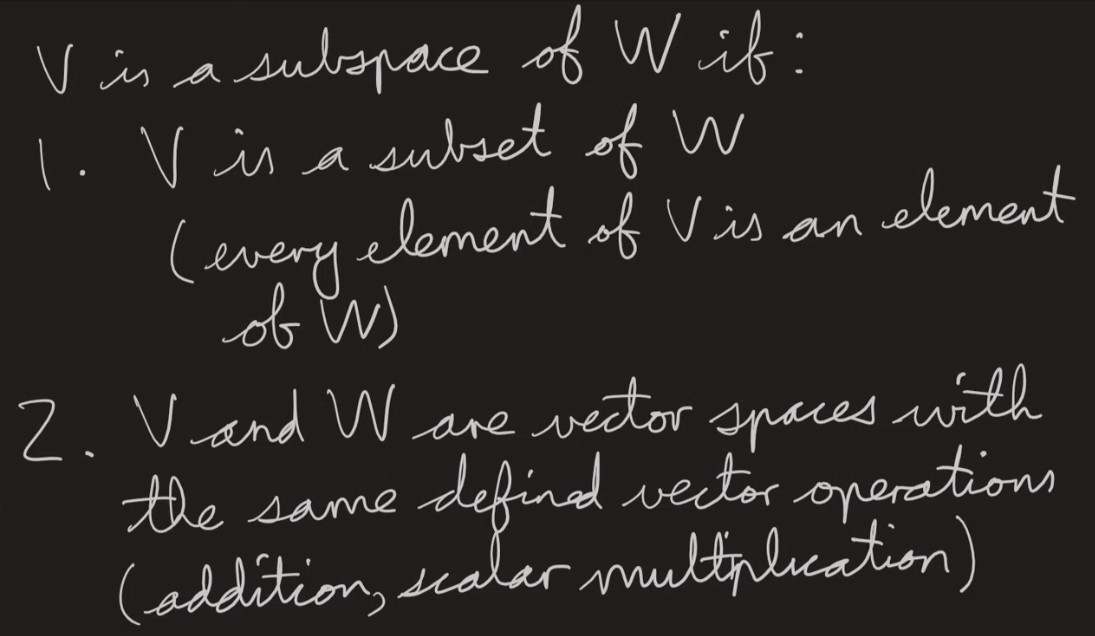 V is a subspace of W if:
1. V is a subset of W
(every element of V is an element
of W)
2. V and W are vector spaces with
the same defined vector operations
(addition, scalar multiplication)